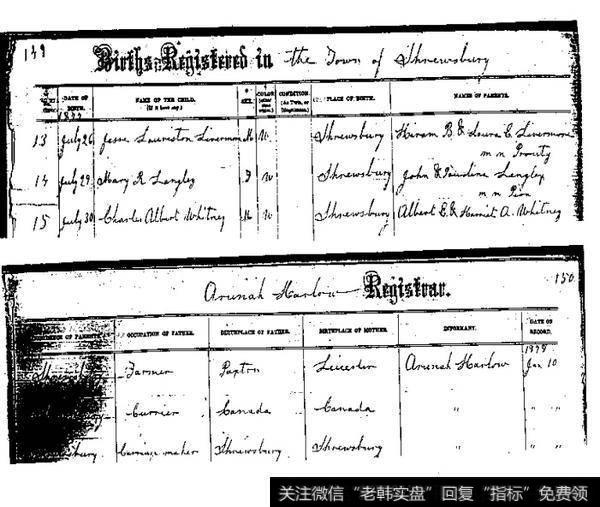 149
Births Registered in the Town of Shrewsbury
DATE OF BIRTH. NAME OF THE CHILD. SEX. COLOR CONDITION PLACE OF BIRTH. NAMES OF PARENTS.
1877
13 July 26 Jesse Laureston Livermore M W Shrewsbury Hiram B & Laura E. Livermore
m n Prouty
14 July 29 Mary R Langley F W Shrewsbury John & Langley
m n
15 July 30 Charles Albert Whitney M W Shrewsbury Albert E. & Harriet A. Whitney
150
Arunah Harlow Registrar.
OCCUPATION OF FATHER. BIRTHPLACE OF FATHER. BIRTHPLACE OF MOTHER. INFORMANT. DATE OF RECORD.
1878
Farmer Paxton Leicester Arunah Harlow Jan 10
Currier Canada Canada " " "
Carriage maker Shrewsbury Shrewsbury " " "
关注微信“老韩实盘”回复“指标”免费领